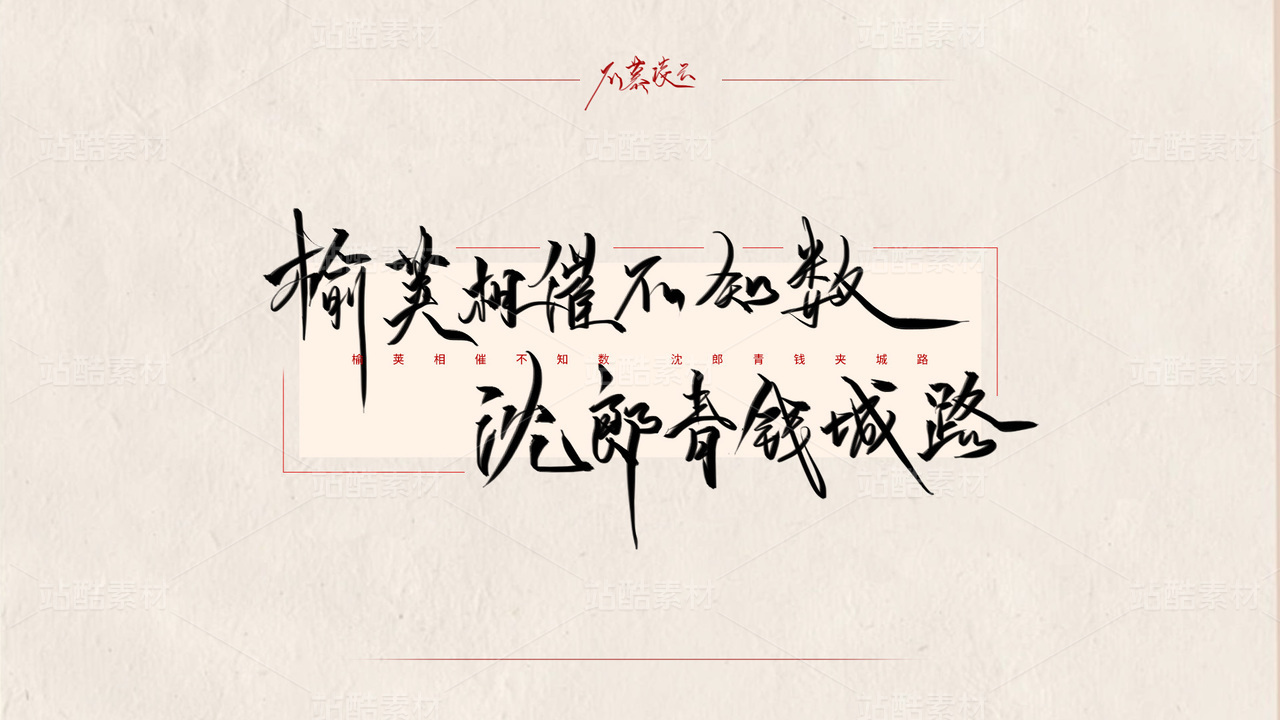 不慕凌云
榆荚相催不知数
榆荚相催不知数 沈郎青钱夹城路
沈郎青钱城路
站酷素材